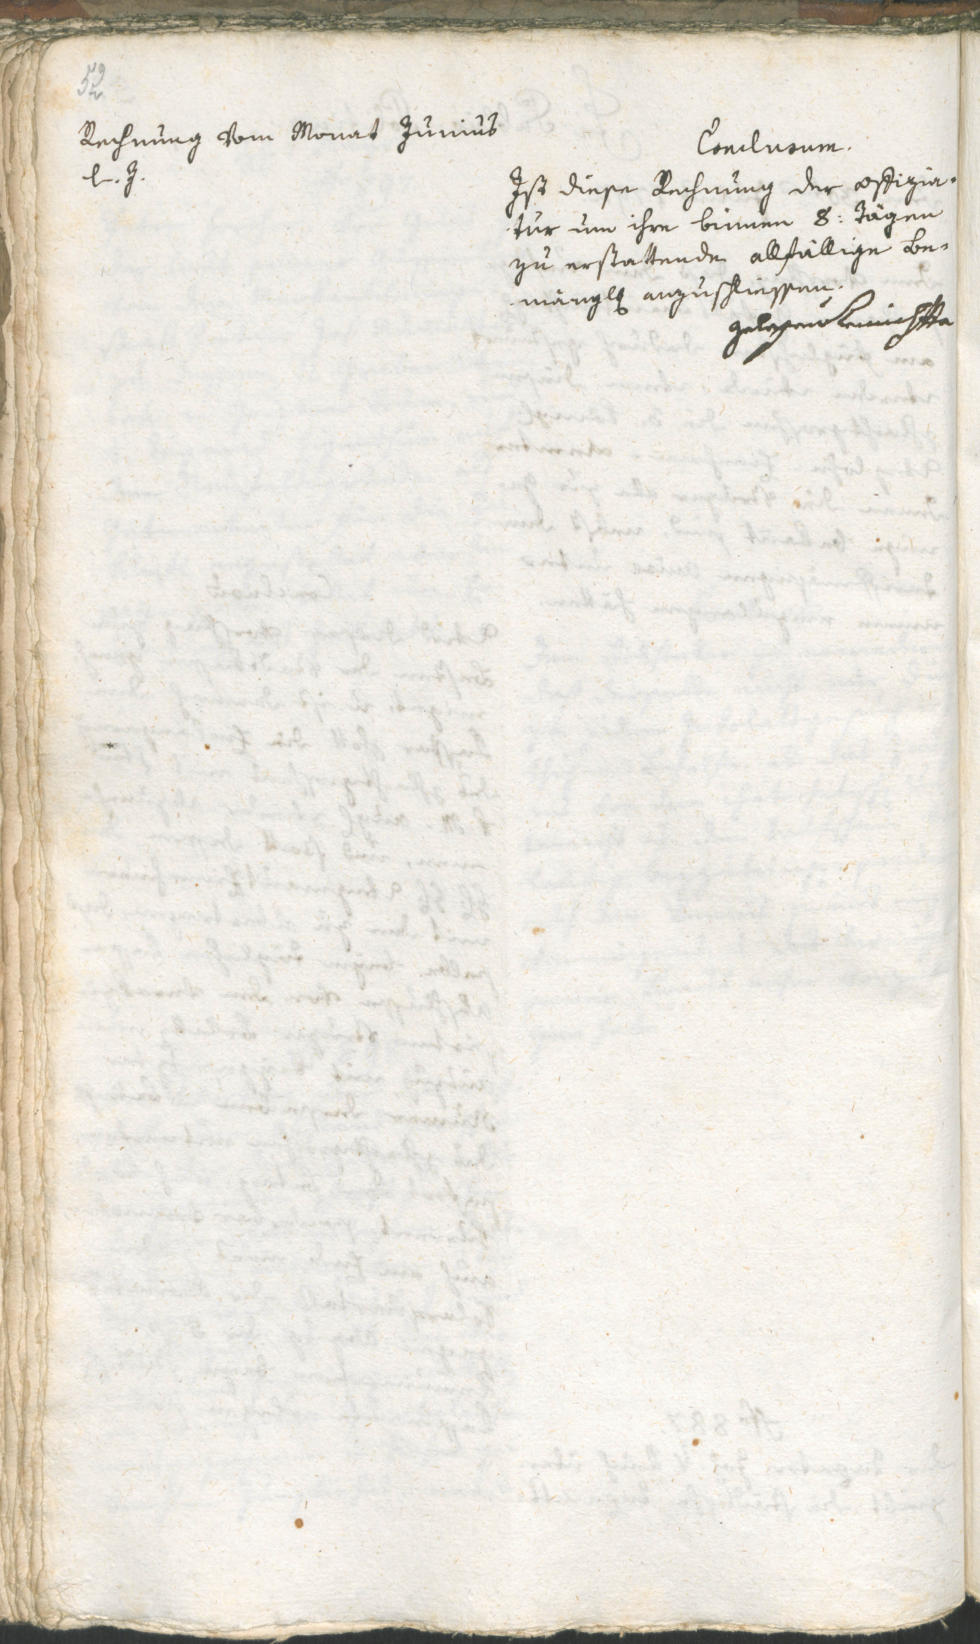 Rechnung vom Monat Junius
l. J.
Conclusum.
Ist diese Rechnung der Offizia-
tur um ihre binnen 8: Tägen
zu erstattende allfällige Be-
mänglg anzuschliessen.